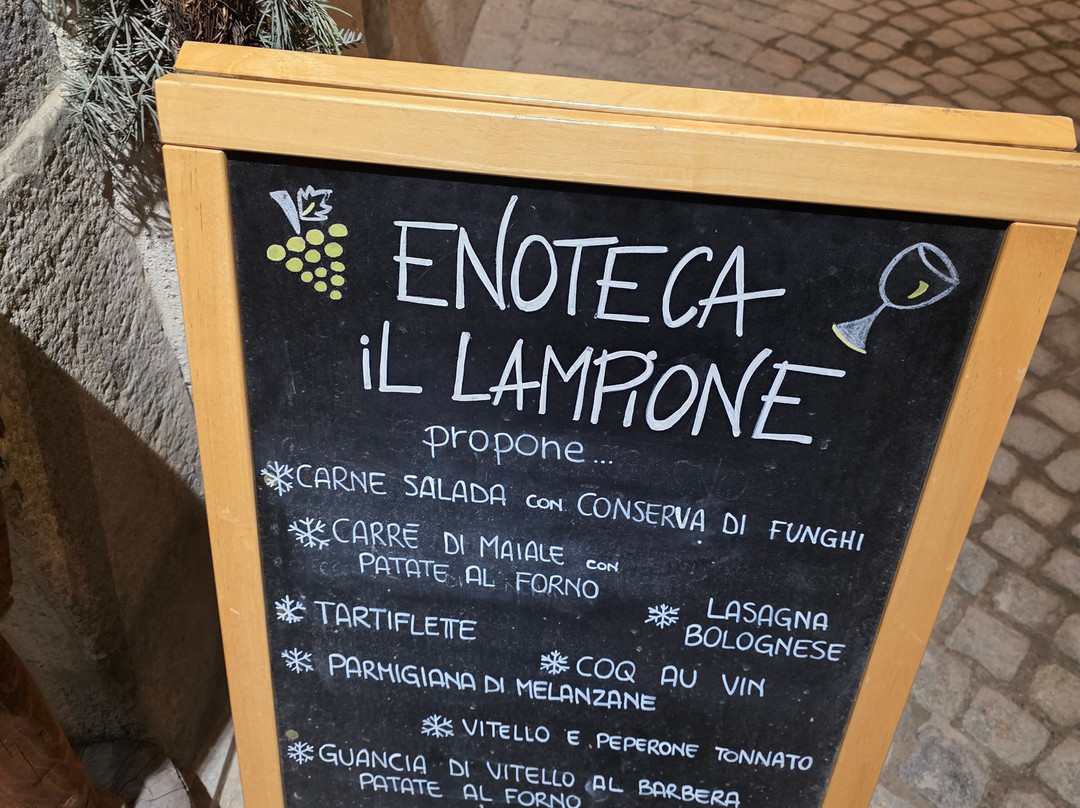 ENOTECA
iL LAMPiONE
propone...
CARNE SALADA con CONSERVA DI FUNGHI
CARRÉ DI MAIALE con
PATATE AL FORNO
TARTIFLETTE
LASAGNA
BOLOGNESE
PARMIGIANA DI MELANZANE
COQ AU VIN
VITELLO E PEPERONE TONNATO
GUANCIA DI VITELLO AL BARBERA
PATATE AL FORNO